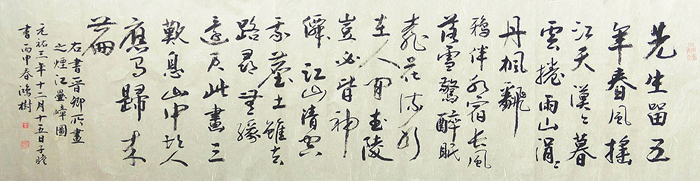 先生留五
年春風搖
江天漠々暮
雲捲雨山涓々
丹楓飜
鴉伴水宿長風
落雪驚醉眠
桃花流水
在人間武陵
豈必皆神
僊江山清空
我塵土雖去
路尋無緣
還君此畫三
歎息山中故人
應歸来
篇
右書晋卿所畫
之煙江疊嶂圖
元祐三年十二月十五日子瞻
書丙申春鴻樹